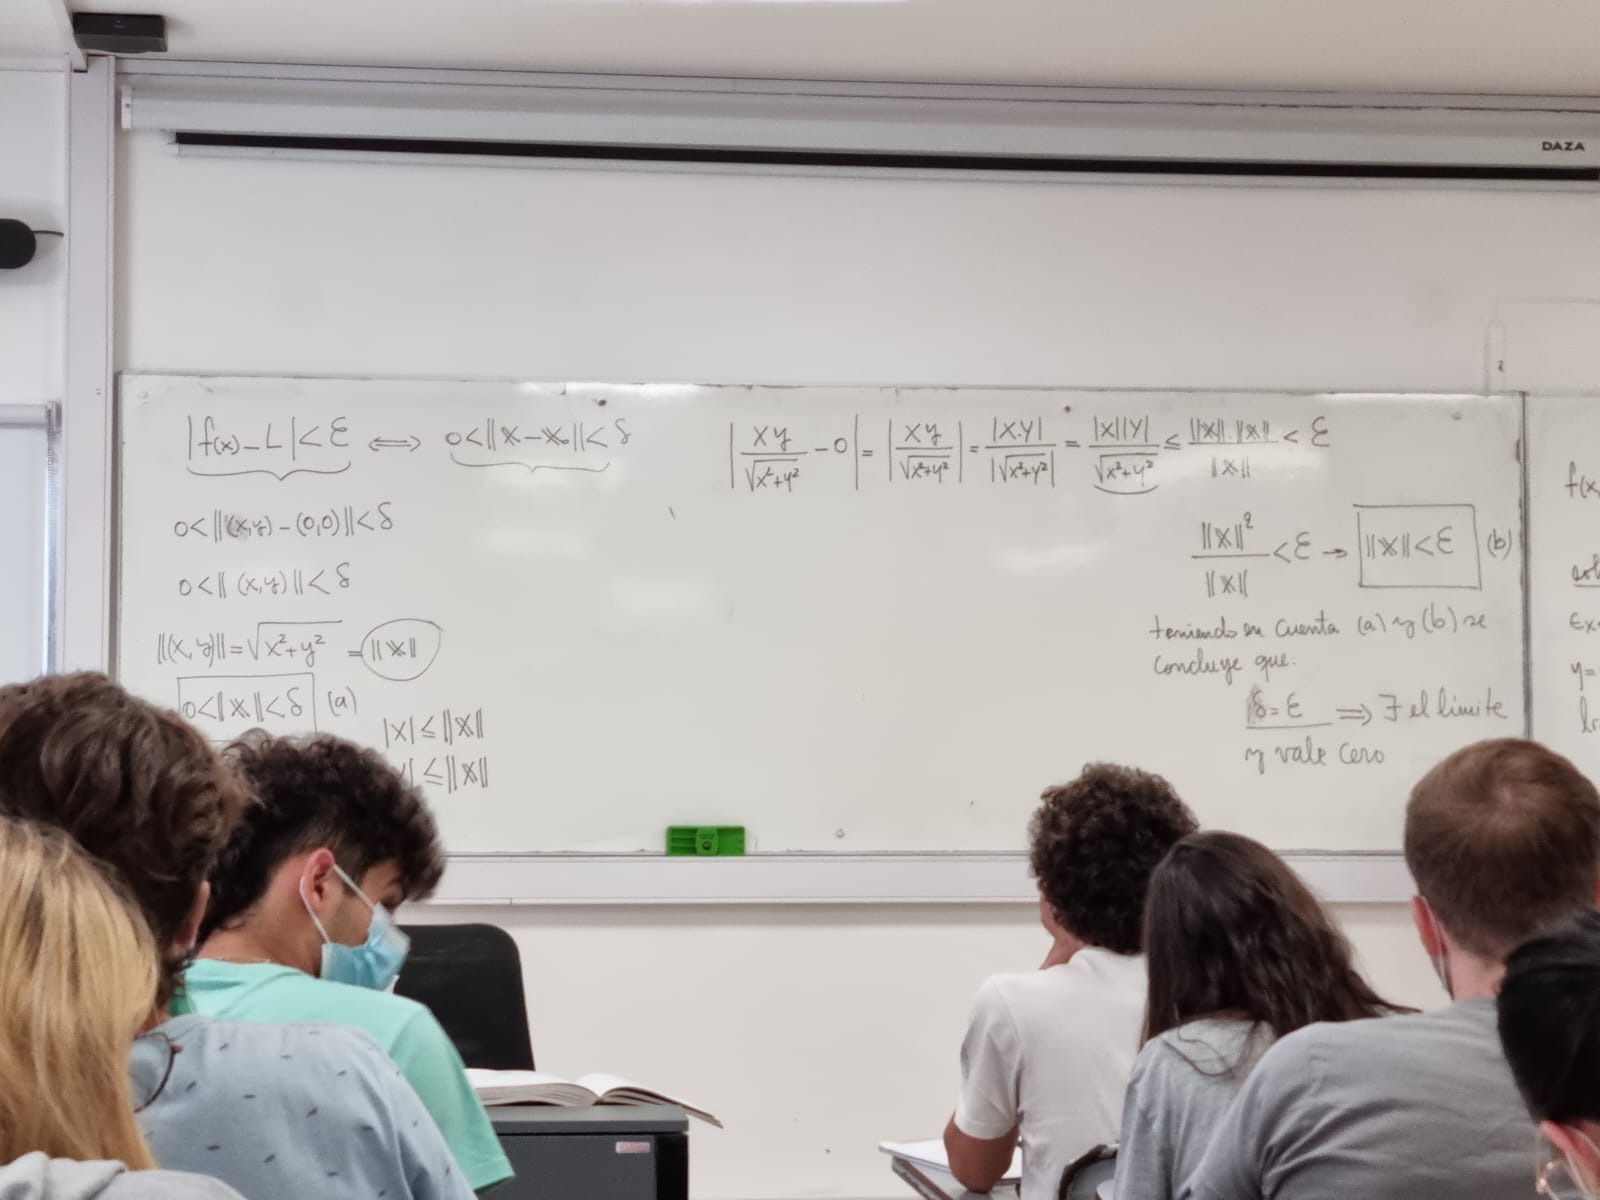 DAZA
|f(x) - L| < ε ⟺ 0 < ||𝕏 - 𝕏₀|| < δ
0 < ||(x,y) - (0,0)|| < δ
0 < ||(x,y)|| < δ
||(x,y)|| = √(x²+y²) = ||𝕏||
0 < ||𝕏|| < δ (a)
|x| ≤ ||𝕏||
y| ≤ ||𝕏||
|xy/√(x²+y²) - 0| = |xy/√(x²+y²)| = |x.y|/|√(x²+y²)| = |x||y|/√(x²+y²) ≤ ||𝕏||.||𝕏||/||𝕏|| < ε
||𝕏||²/||𝕏|| < ε → ||𝕏|| < ε (b)
teniendo en cuenta (a) y (b) se
concluye que:
δ = ε ⟹ ∃ el límite
y vale cero
f(x,
sol
Ex
y=